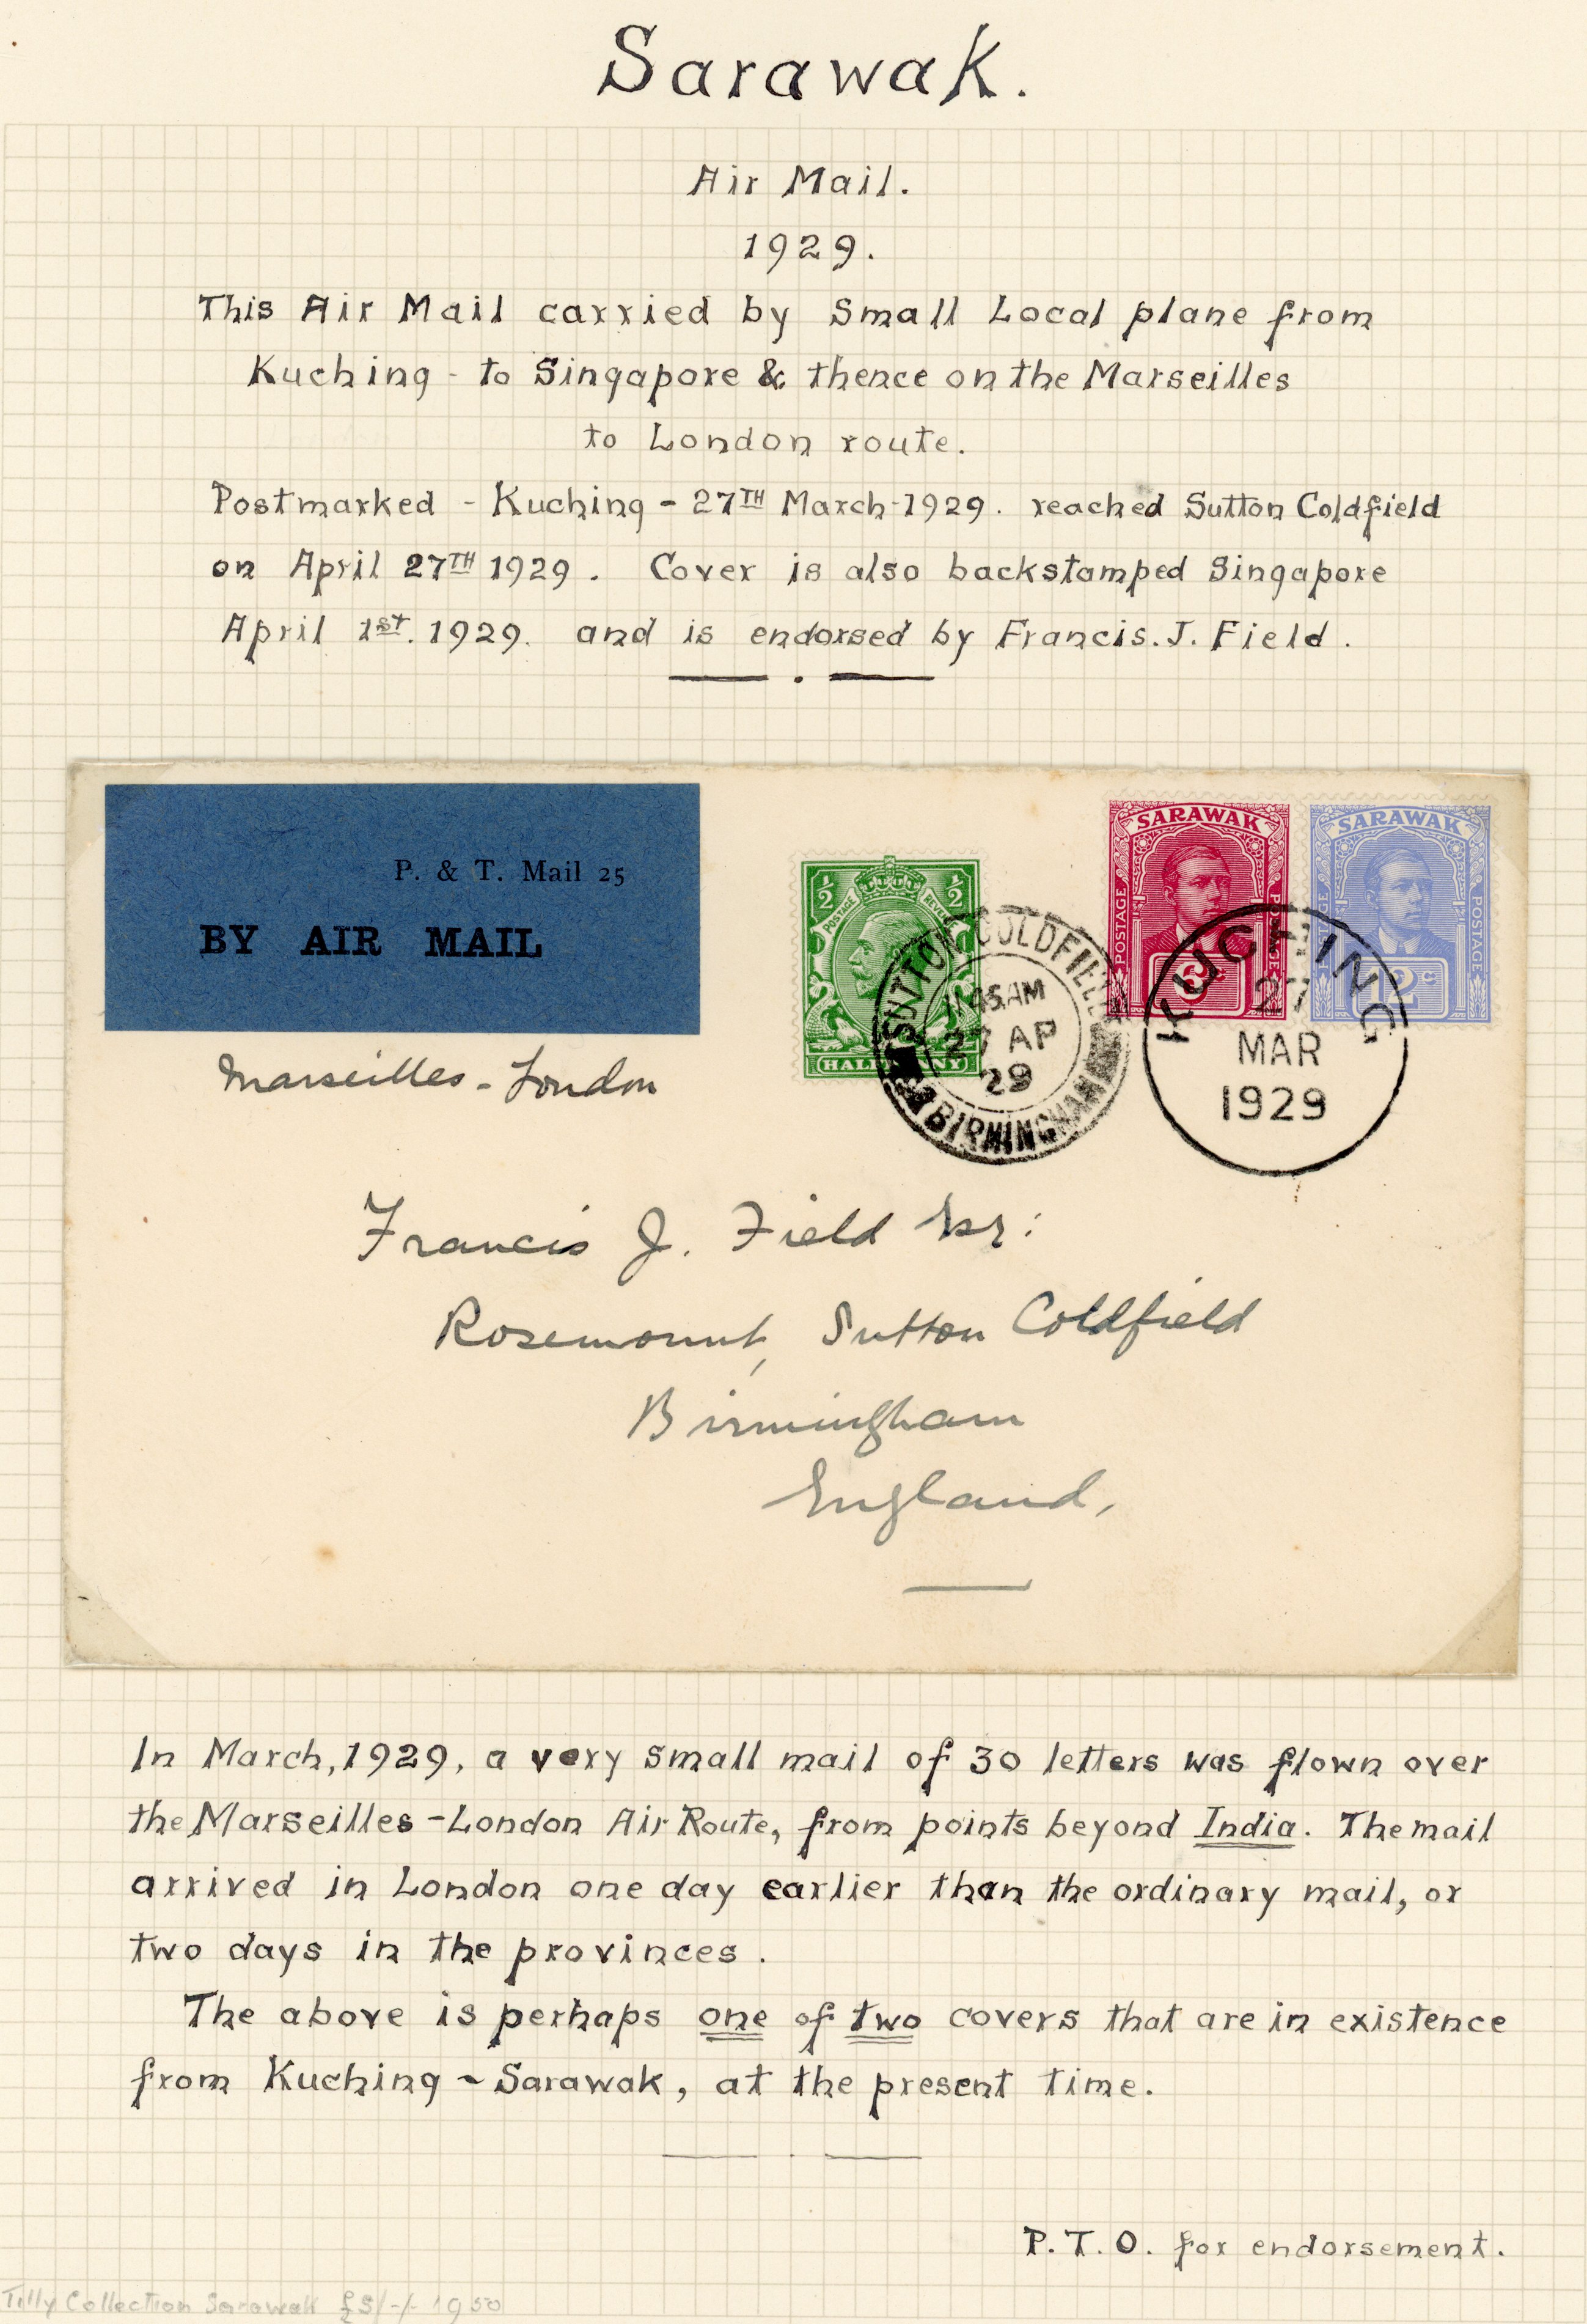 Sarawak.
Air Mail.
1929.
This Air Mail carried by Small Local plane from
Kuching - to Singapore & thence on the Marseilles
to London route.
Postmarked - Kuching - 27TH March-1929. reached Sutton Coldfield
on April 27TH 1929. Cover is also backstamped Singapore
April 1st. 1929. and is endorsed by Francis. J. Field.
P. & T. Mail 25
BY AIR MAIL
Marseilles - London
½ ½
POSTAGE REVENUE
HALFPENNY
SUTTON COLDFIELD
45 AM
27 AP
29
BIRMINGHAM
SARAWAK
POSTAGE
SARAWAK
POSTAGE POSTAGE
12c
KUCHING
27
MAR
1929
Francis J. Field Esq:
Rosemount, Sutton Coldfield
Birmingham
England,
In March, 1929, a very small mail of 30 letters was flown over
the Marseilles - London Air Route, from points beyond India. The mail
arrived in London one day earlier than the ordinary mail, or
two days in the provinces.
The above is perhaps one of two covers that are in existence
from Kuching ~ Sarawak, at the present time.
P.T.O. for endorsement.
Tilly Collection Sarawak £5/-/- 1950